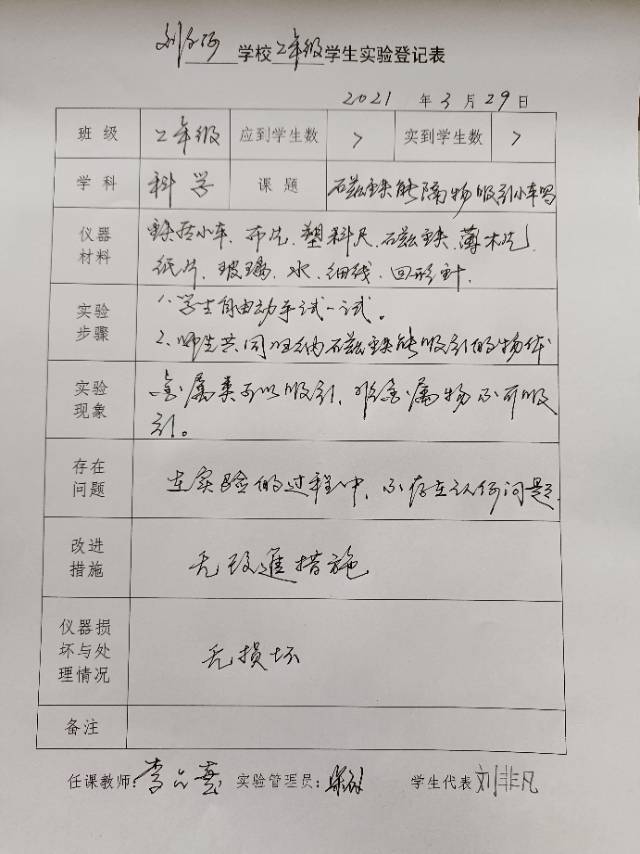 学校 2年级 学生实验登记表
2021 年 3 月 29 日
班 级 2年级 应到学生数 7 实到学生数 7
学 科 科学 课 题 石磁铁能隔物吸引小车吗
仪器材料 铁珠小车、布片、塑料尺、石磁铁、薄木片、
纸片、玻璃、水、细线、回形针.
实验步骤 1.学生自由动手试一试。
2.师生共同归纳石磁铁能吸引的物体
实验现象 金属类可以吸引,非金属物不可吸
引。
存在问题 在实验的过程中,不存在认何问题.
改进措施 无改進措施
仪器损坏与处理情况 无损坏
备注
任课教师: 实验管理员: 学生代表 刘非凡